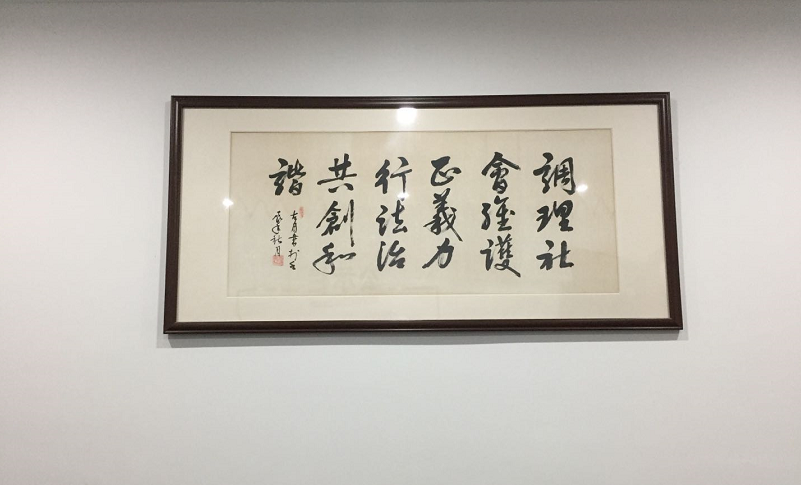 調理社
會維護
正義力
行法治
共創和
諧